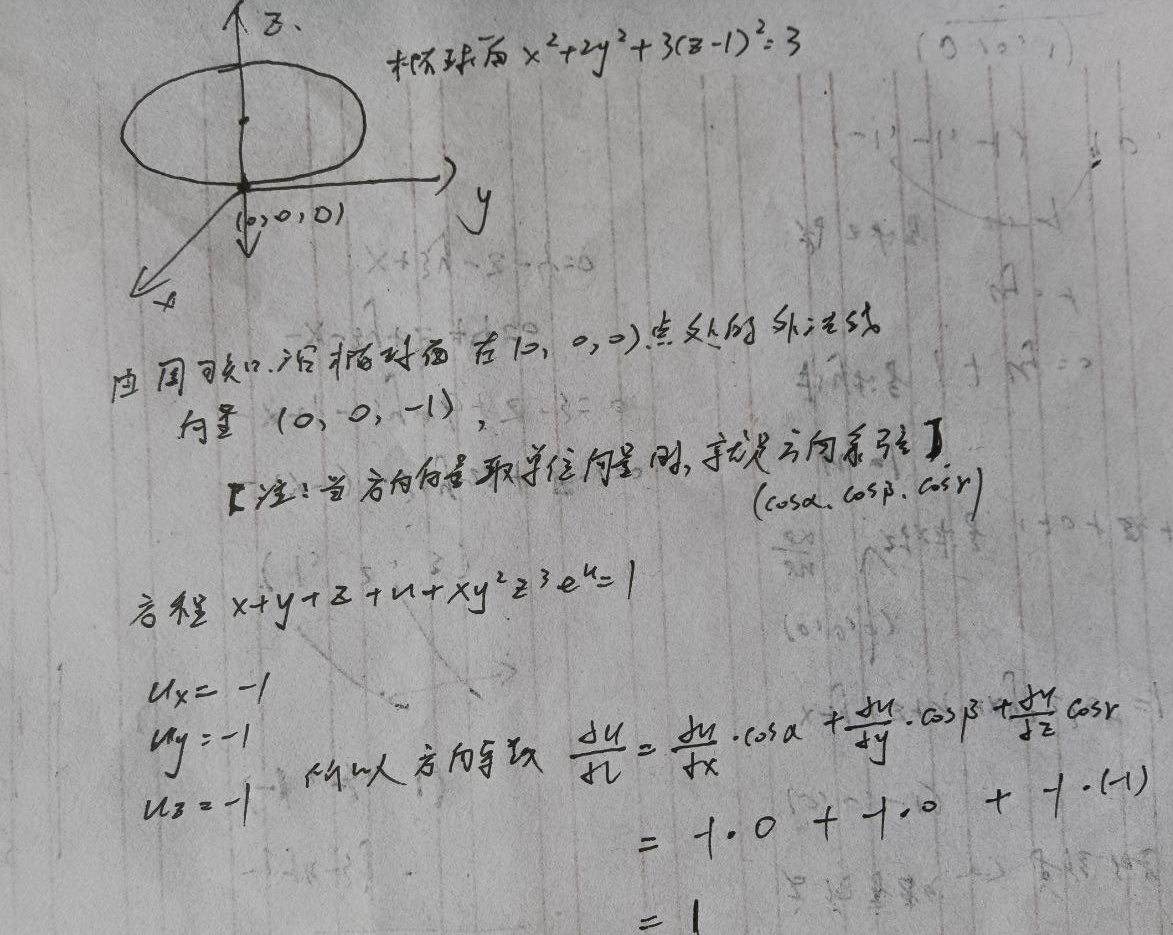 z.
椭球面 x²+2y²+3(z-1)²=3
y
(0,0,0)
x
由图可知.沿椭球面在(0,0,0)点处的外法线
向量 (0,0,-1),
【注:当方向向量取单位向量时,就是方向余弦】
(cosα.cosβ.cosγ)
方程 x+y+z+u+xy²z³eᵘ=1
uₓ=-1
u_y=-1
u_z=-1
所以方向导数 ∂u/∂l = ∂u/∂x·cosα + ∂u/∂y·cosβ + ∂u/∂z cosγ
= -1·0 + -1·0 + -1·(-1)
= 1